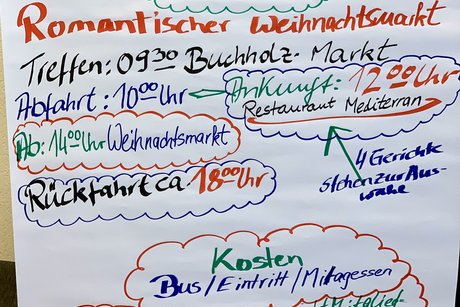 Romantischer Weihnachtsmarkt
Treffen: 09³⁰ Buchholz-Markt
Abfahrt: 10⁰⁰Uhr
Ankunft: 12⁰⁰Uhr
Restaurant Mediterran
Ab: 14⁰⁰Uhr Weihnachtsmarkt
4 Gerichte
stehen zur Aus-
wahl
Rückfahrt ca. 18⁰⁰Uhr
Kosten
Bus/Eintritt/Mittagessen